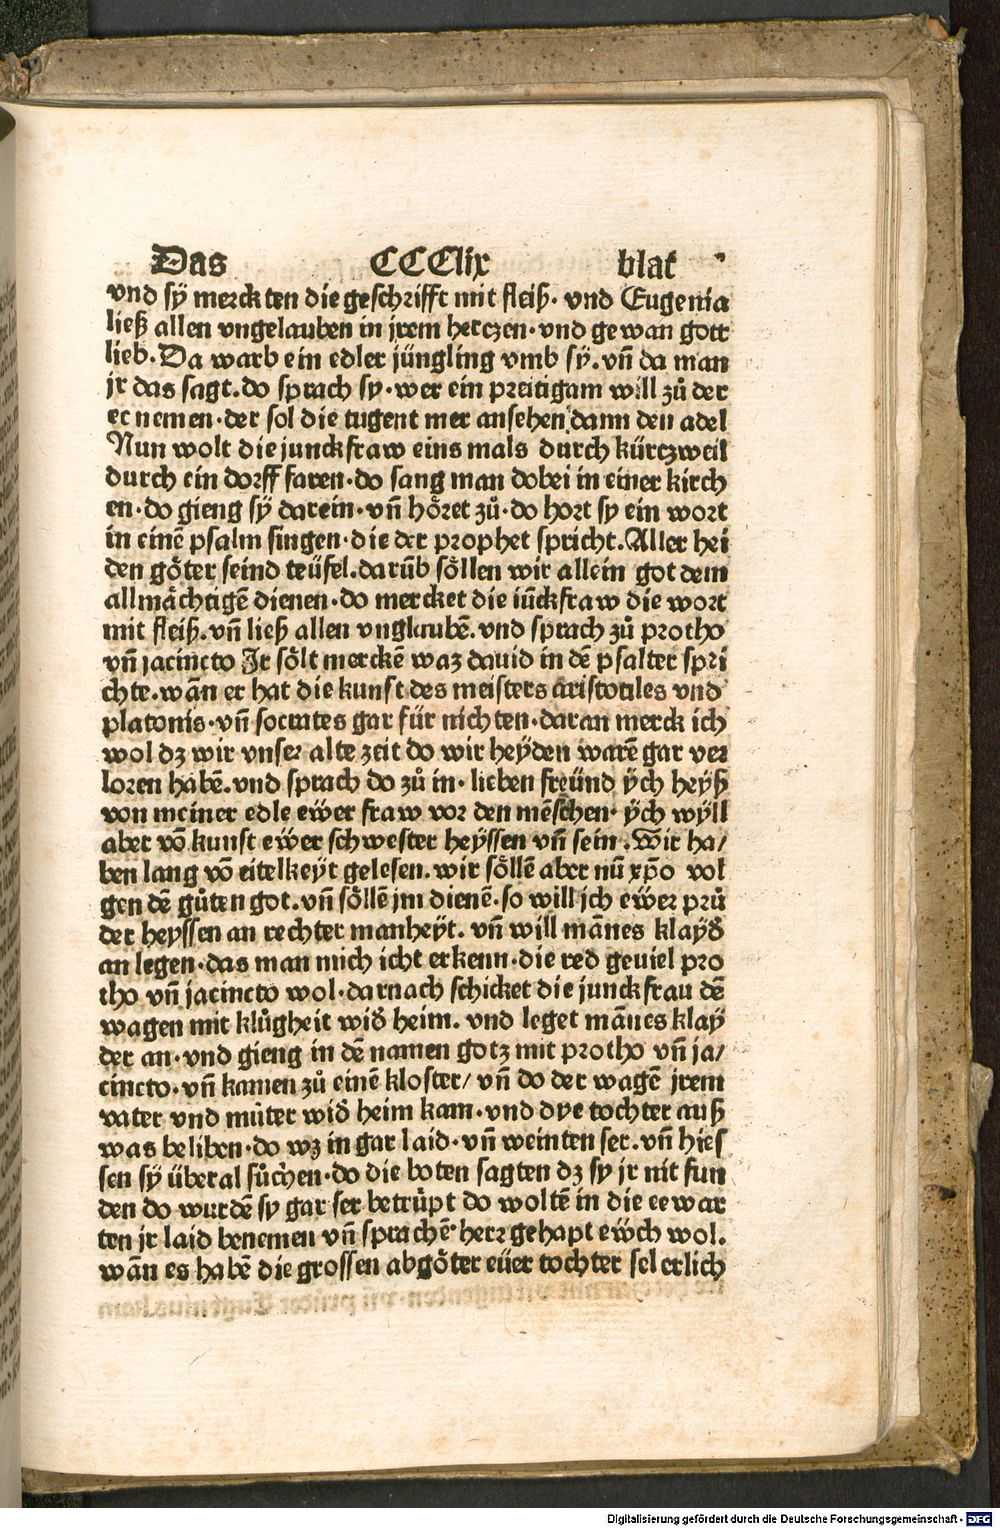 Das CCClix blat
vnd sÿ merckten die geschrifft mit fleiß· vnd Eugenia
ließ allen vngelauben in jrem hertzen·vnd gewan gott
lieb.Da warb ein edler jüngling vmb sÿ.vñ da man
jr das sagt.do sprach sy·wer ein preitigam will zů der
ee nemen·der sol die tugent mer ansehen dann den adel
Nun wolt die junckfraw eins mals durch kürtzweil
durch ein dorff faren·do sang man dobei in einer kirch
en·do gieng sÿ darein·vñ höret zů·do hort sy ein wort
in einē psalm singen·die der prophet spricht.Aller hei
den göter seind teüfel.darūb söllen wir allein got dem
allmächtigē dienen·do mercket die iūckfraw die wort
mit fleiß.vñ ließ allen vnglaubē.vnd sprach zů protho
vñ jacincto Ir sölt merckē waz dauid in dē psalter spri
chte.wān er hat die kunst des meisters aristotiles vnd
platonis·vñ socrates gar für nichten·daran merck ich
wol dz wir vnser alte zeit do wir heyden warē gar ver
loren habē.vnd sprach do zů in· lieben freünd ÿch heyß
von meiner edle eẅer fraw vor den mēschen· ÿch wÿll
aber vō kunst eẅer schwester heyssen vñ sein.Wir ha/
ben lang vō eitelkeyt gelesen.wir söllē aber nū xp̄o vol
gen dē gůten got.vñ söllē jm dienē·so will jch eẅer prů
der heyssen an rechter manheyt. vñ will mānes klayd̛
an legen·das man mich icht erkenn·die red geuiel pro
tho vñ jacincto wol·darnach schicket die junckfrau dē
wagen mit klůgheit wid̛ heim. vnd leget mānes klaÿ
der an·vnd gieng in dē namen gotz mit protho vñ ja/
cincto·vñ kamen zů einē kloster/ vñ do der wagē jrem
vater vnd můter wid̛ heim kam·vnd dye tochter auß
was beliben·do wz in gar laid·vñ weinten ser.vñ hies
sen sÿ überal sůchen·do die boten sagten dz sy jr nit fun
den do wurdē sy gar ser betrůpt do woltē in die eewar
ten jr laid benemen vñ sprachē· herr gehapt eẅch wol.
wān es habē die grossen abgöter eüer tochter selerlich
Digitalisierung gefördert durch die Deutsche Forschungsgemeinschaft · DFG